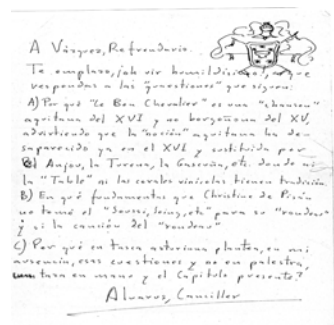 A Vázquez, Refrendario.
Te emplazo, ¡oh vir humildísimo!, a que
respondas a las "quaestiones" que siguen:
A) Por qué "Le Bon Chevalier" es una "chanson"
aquitana del XVI y no borgoñona del XV,
advirtiendo que la "noción" aquitana ha de-
saparecido ya en el XVI y sustituida por
el Anjou, la Turena, la Gascuña, etc. donde ni
la "Table" ni las corales vinícolas tienen tradición.
B) En qué fundamentas que Christine de Pisán
no tomó el "seulete suis, etc" para su "rondeau"
y si la canción del "rondeau"
C) Por qué en tasca asturiana plantea, en mi
ausencia, esas cuestiones y no en palestra,
taza en mano y el Capítulo presente?
Alvarus, Canciller